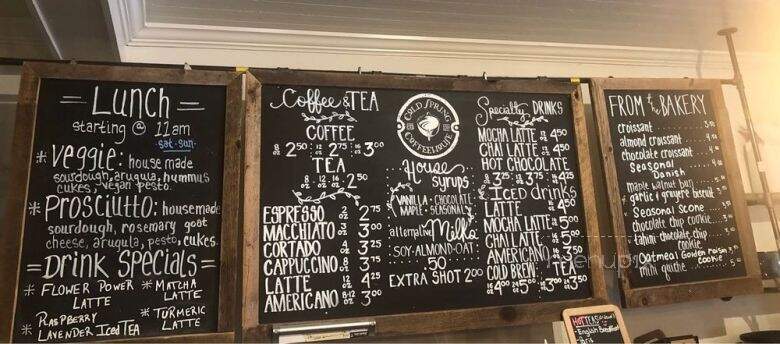 Lunch
starting @ 11am
sat-sun
* Veggie: house made
sourdough, arugula, hummus
cukes, vegan pesto.
* Prosciutto: housemade
sourdough, rosemary goat
cheese, arugula, pesto, cukes.
Drink Specials
* Flower Power Latte
* Raspberry Lavender Iced Tea
* Matcha Latte
* Turmeric Latte
Coffee & TEA
COFFEE
8 oz 2.50 12 oz 2.75 16 oz 3.00
TEA
8 oz 12 oz 16 oz 2.50
ESPRESSO 2 oz 2.75
MACCHIATO 3 oz 3.00
CORTADO 4 oz 3.25
CAPPUCCINO 8 oz 3.75
LATTE 12 oz 4.25
AMERICANO 8-12 oz 3.00
COLD SPRING
COFFEEHOUSE
House
Syrups
VANILLA - CHOCOLATE
MAPLE - SEASONAL
alternative Milks
SOY-ALMOND-OAT
.50
EXTRA SHOT 2.00
Specialty DRINKS
MOCHA LATTE 4.50
CHAI LATTE 4.50
HOT CHOCOLATE
8 oz 3.25 12 oz 3.75 16 oz 4.25
Iced drinks
LATTE 4.50
MOCHA LATTE 5.00
CHAI LATTE 5.00
AMERICANO 3.50
COLD BREW TEA
16 oz 4.00 24 oz 5.00 3.50
FROM the BAKERY
croissant
almond croissant
chocolate croissant
Seasonal
Danish
maple walnut bun
* garlic & gruyere biscuit
Seasonal Scone
chocolate chip cookie
tahini chocolate chip
cookie
oatmeal golden raisin
cookie
mini quiche
HOT TEAS
- English Breakfast
- Paris